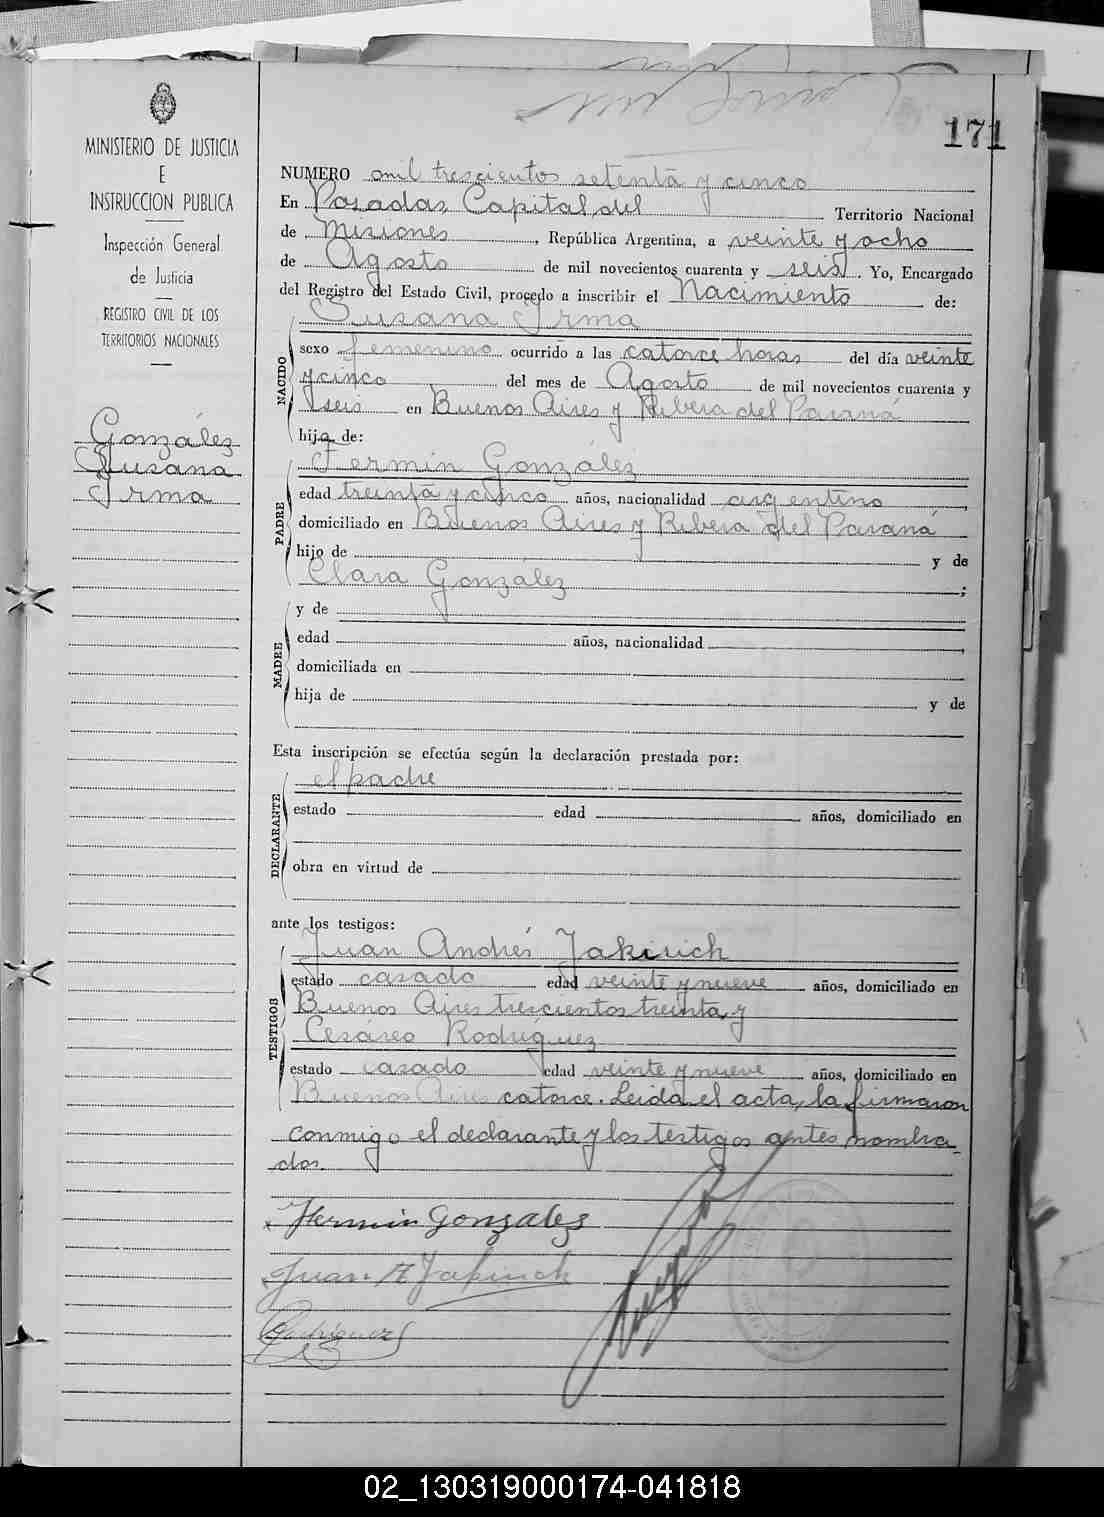 171
MINISTERIO DE JUSTICIA
E
INSTRUCCION PUBLICA
Inspección General
de Justicia
REGISTRO CIVIL DE LOS
TERRITORIOS NACIONALES
González
Susana
Irma
NUMERO mil trescientos setenta y cinco
En Posadas, Capital del Territorio Nacional
de Misiones, República Argentina, a veinte y ocho
de Agosto de mil novecientos cuarenta y seis. Yo, Encargado
del Registro del Estado Civil, procedo a inscribir el Nacimiento de:
Susana Irma
NACIDO
sexo femenino ocurrido a las catorce horas del día veinte
y cinco del mes de Agosto de mil novecientos cuarenta y
seis en Buenos Aires y Ribera del Paraná
hija de:
Fermín González
PADRE
edad treinta y cinco años, nacionalidad argentino,
domiciliado en Buenos Aires y Ribera del Paraná
hijo de y de
Clara González;
MADRE
y de
edad años, nacionalidad,
domiciliada en
hija de y de
Esta inscripción se efectúa según la declaración prestada por:
el padre
DECLARANTE
estado edad años, domiciliado en
obra en virtud de
ante los testigos:
Juan Andrés Jakirich
TESTIGOS
estado casado edad veinte y nueve años, domiciliado en
Buenos Aires trescientos treinta, y
Cesáreo Rodriguez
estado casado edad veinte y nueve años, domiciliado en
Buenos Aires catorce. Leida el acta, la firmaron
conmigo el declarante y los testigos antes nombra-
dos.
Fermin Gonzalez
Juan A Jakirich
Rodriguez
02_130319000174-041818